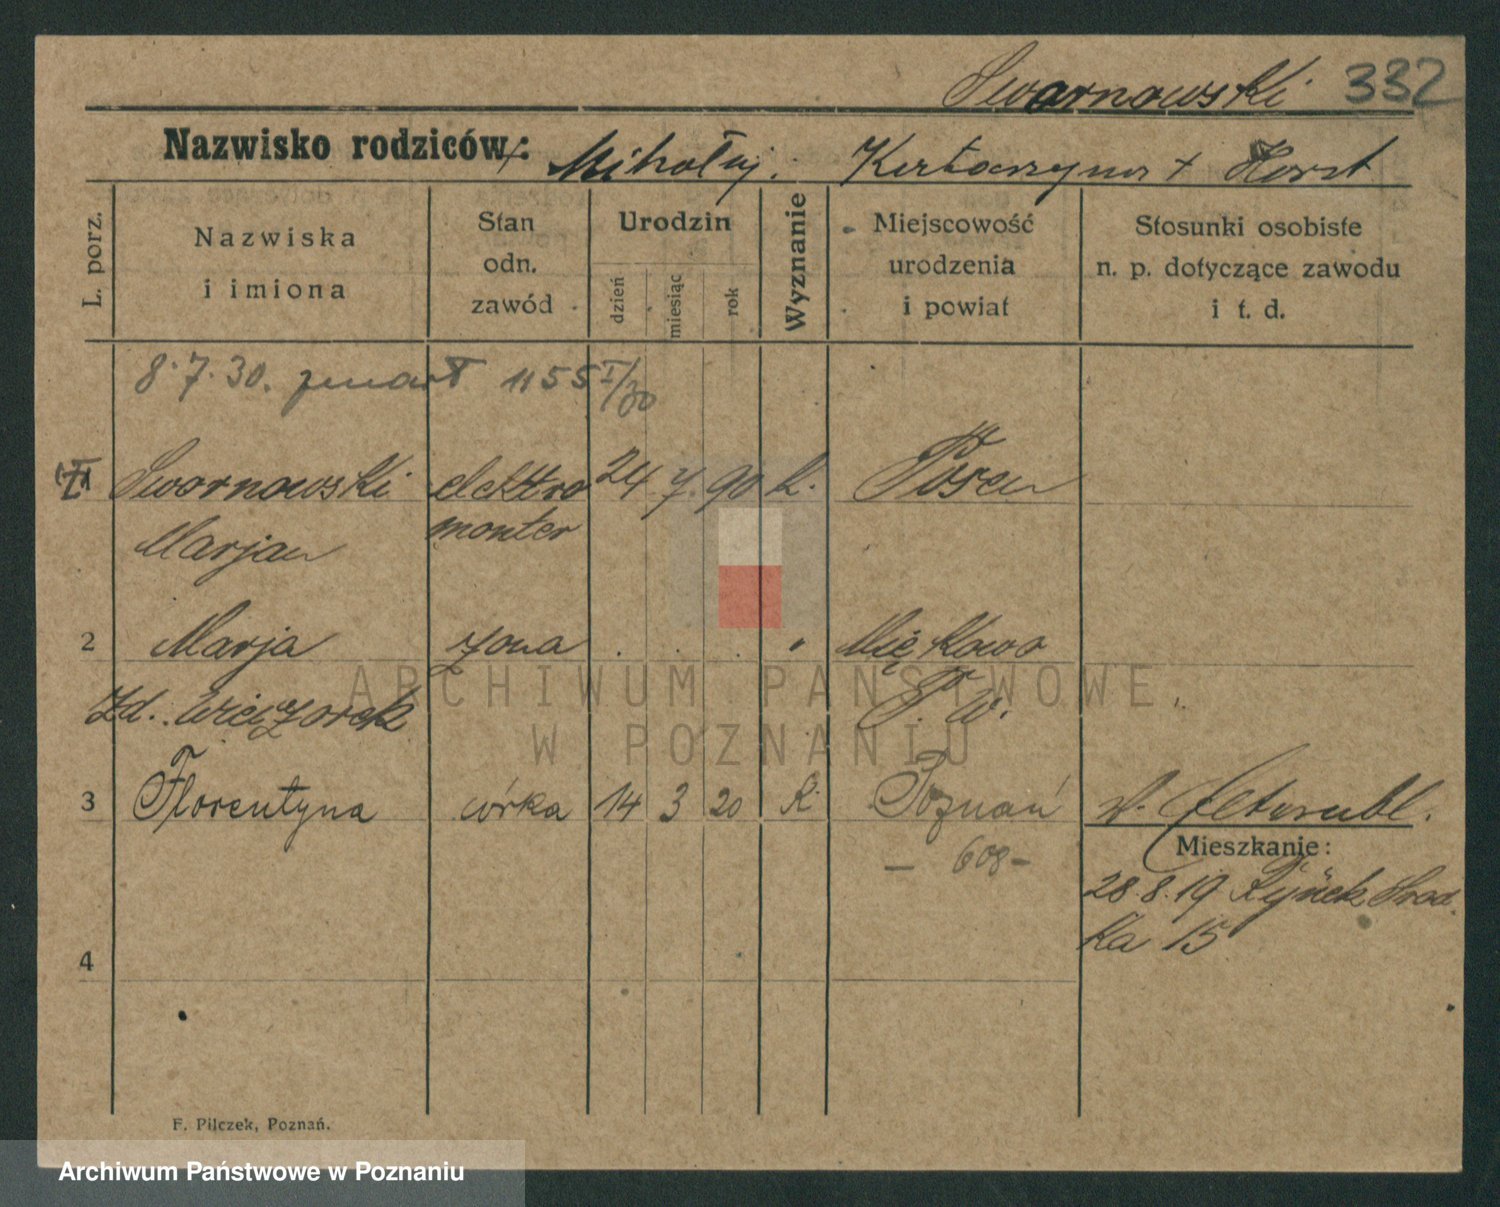 Swornowski 332
Nazwisko rodziców: + Mikołaj. Katarzyna + Horst
L. porz.
Nazwiska
i imiona
Stan
odn.
zawód
Urodzin
dzień
miesiąc
rok
Wyznanie
Miejscowość
urodzenia
i powiat
Stosunki osobiste
n. p. dotyczące zawodu
i t. d.
8.7.30. zmarł 1155 I/30
Swornowski elektro 24 7. 90 k. Posen
Marjan monter
2 Marja żona . . . " Miękowo
zd. Wieczorek P. W.
3 Florentyna córka 14 3 20 k. Poznań
Mieszkanie:
– 608 –
28.8.19 Rynek Śród
ka 15
4
F. Pilczek, Poznań.
ARCHIWUM PAŃSTWOWE
W POZNANIU
Archiwum Państwowe w Poznaniu